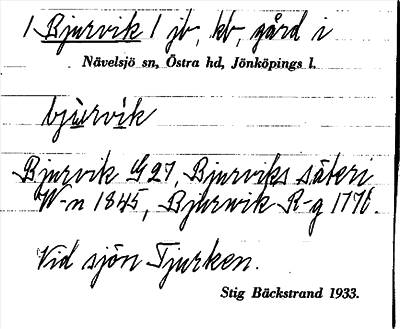 1 Bjurvik 1 jb, kb, gård i
Nävelsjö sn, Östra hd, Jönköpings l.
bjùrvìk
Bjurvik G 27, Bjurviks säteri
W-n 1845, Bjurwik R-g 1770.
Vid sjön Tjurken.
Stig Bäckstrand 1933.